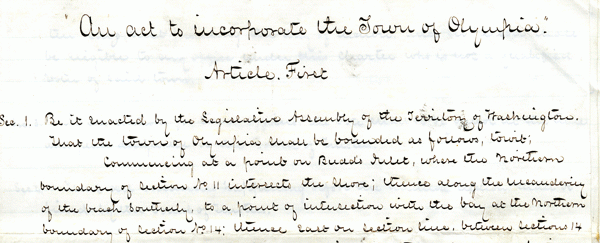 "An act to incorporate the Town of Olympia."
Article. First
Sec. 1. Be it enacted by the Legislative Assembly of the Territory of Washington.
That the town of Olympia shall be bounded as follows, towit;
Commencing at a point on Budds Inlet, where the Northern
boundary of section No. 11 intersects the shore; thence along the meandering
of the beach Southerly to a point of intersection with the bay at the Northern
boundary of section No. 14; thence East on section line, between sections 14